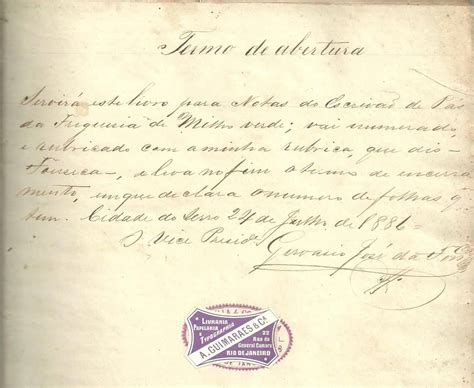 Termo de abertura
Servirá este livro para Notas do Escrivão de Pas
da Freguesia de Milho verde; vai numerado
e rubricado com a minha rubrica, que dis-
Fonseca-, e leva no fim o termo de encerra
mento, em que declara o numero de folhas q
tem. Cidade do Serro 24 de Julho de 1886-
O Vice Presid.
Gervasio José da
LIVRARIA
PAPELARIA
E TYPOGRAPHIA
A. GUIMARÃES & Ca.
22
Rua do
General Camara
RIO DE JANEIRO